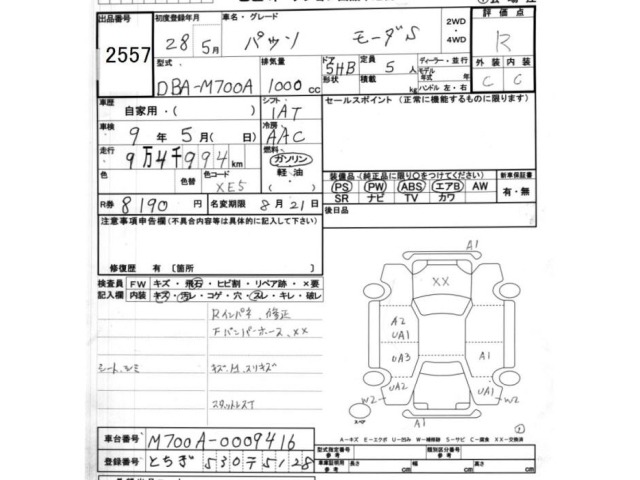 出品番号 初度登録年月 車名・グレード 2WD ・ 4WD 評価点
2557 28年5月 パッソ モーダS R
型式 排気量 ドア 形状 定員 積載 ディーラー・並行 外装 内装
DBA-M700A 1000cc 5HB 5人 モデル年式 ハンドル 左・右 C C
車歴 自家用・( ) シフト IAT セールスポイント(正常に機能するものに限ります)
車検 9年5月( 日) 冷房 AAC
走行 9万4千994km 燃料 ガソリン・軽油・
色 色替 色コード XE5
装備品(純正品に限り○をつけてください) 新車保証書
PS PW ABS エアB AW 有・無
SR ナビ TV カワ
R券 8190円 名変期限 8月21日 後日品
注意事項申告欄(不具合内容等は具体的に記入して下さい)
修復歴 有〔箇所
検査員 FW キズ・飛石・ヒビ割・リペア跡・×要
記入欄 内装 キズ・汚レ・コゲ・穴・スレ・キレ・破レ
Rインパネ、修正
Fバンパーホース、XX
シート、シミ キズ、凹、スリキズ
スタットレスT
A1
XX
A2
UA1
UA3 A1
W2 UA2 UA1 W2
A1
スペア
A-キズ E-エクボ U-凹み W-補修跡 S-サビ C-腐食 XX-交換済
車台番号 M700A-0009416
登録番号 とちぎ 530 テ 5128
型式指定番号 参考 類別区分番号 参考
車庫証明用 参考 長さ cm 幅 cm 高さ cm